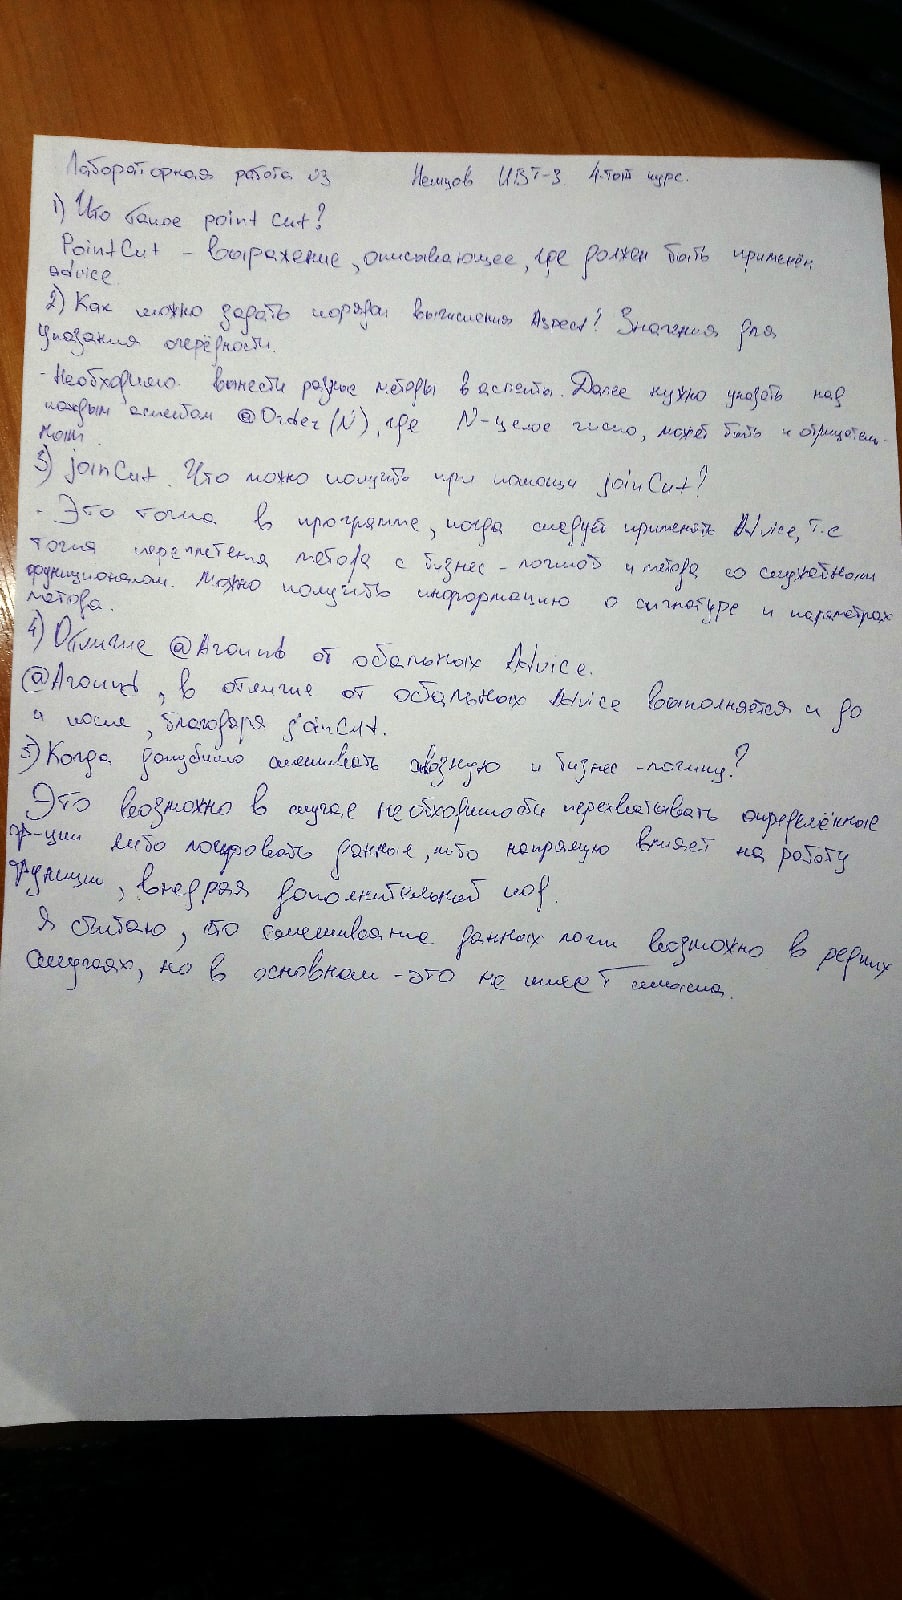 Лабораторная работа №3 Немцов ИВТ-3 4-тый курс.
1) Что такое point cut?
PointCut - выражение, описывающее, где должен быть применён
advice.
2) Как можно задать порядок вычисления Aspect? Значения для
указания очерёдности.
- Необходимо вынести разные методы в аспекты. Далее нужно указать над
каждым аспектом @Order(N), где N-целое число, может быть и отрицатель-
ным.
3) joinCut. Что можно получить при помощи joinCut?
- Это точка в программе, когда следует применять Advice, т.е
точка переплетения метода с бизнес-логикой и метода со служебным
функционалом. Можно получить информацию о сигнатуре и параметрах
метода.
4) Отличие @Around от остальных Advice.
@Around, в отличие от остальных Advice выполняется и до
и после, благодаря joinCut.
5) Когда допустимо смешивать сквозную и бизнес-логику?
Это возможно в случае необходимости перехватывать определённые
ф-ции либо логировать данные, что напрямую влияет на работу
функции, внедряя дополнительный код.
Я считаю, что смешивание данных логик возможно в редких
случаях, но в основном - это не имеет смысла.